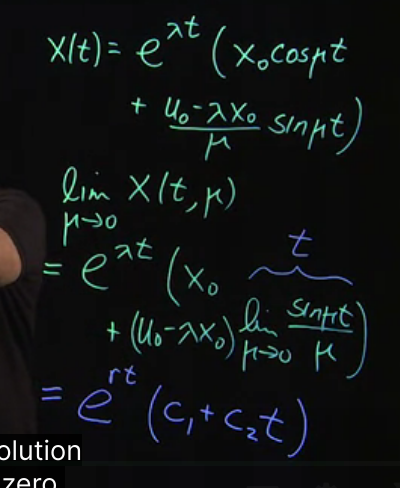 x(t) = e^{λt} ( x₀ cos μt
+ \frac{u₀ - λx₀}{μ} sin μt )
lim_{μ→0} x(t, μ)
t
= e^{λt} ( x₀
+ (u₀ - λx₀) lim_{μ→0} \frac{sin μt}{μ} )
= e^{rt} ( c₁ + c₂t )
olution
zero